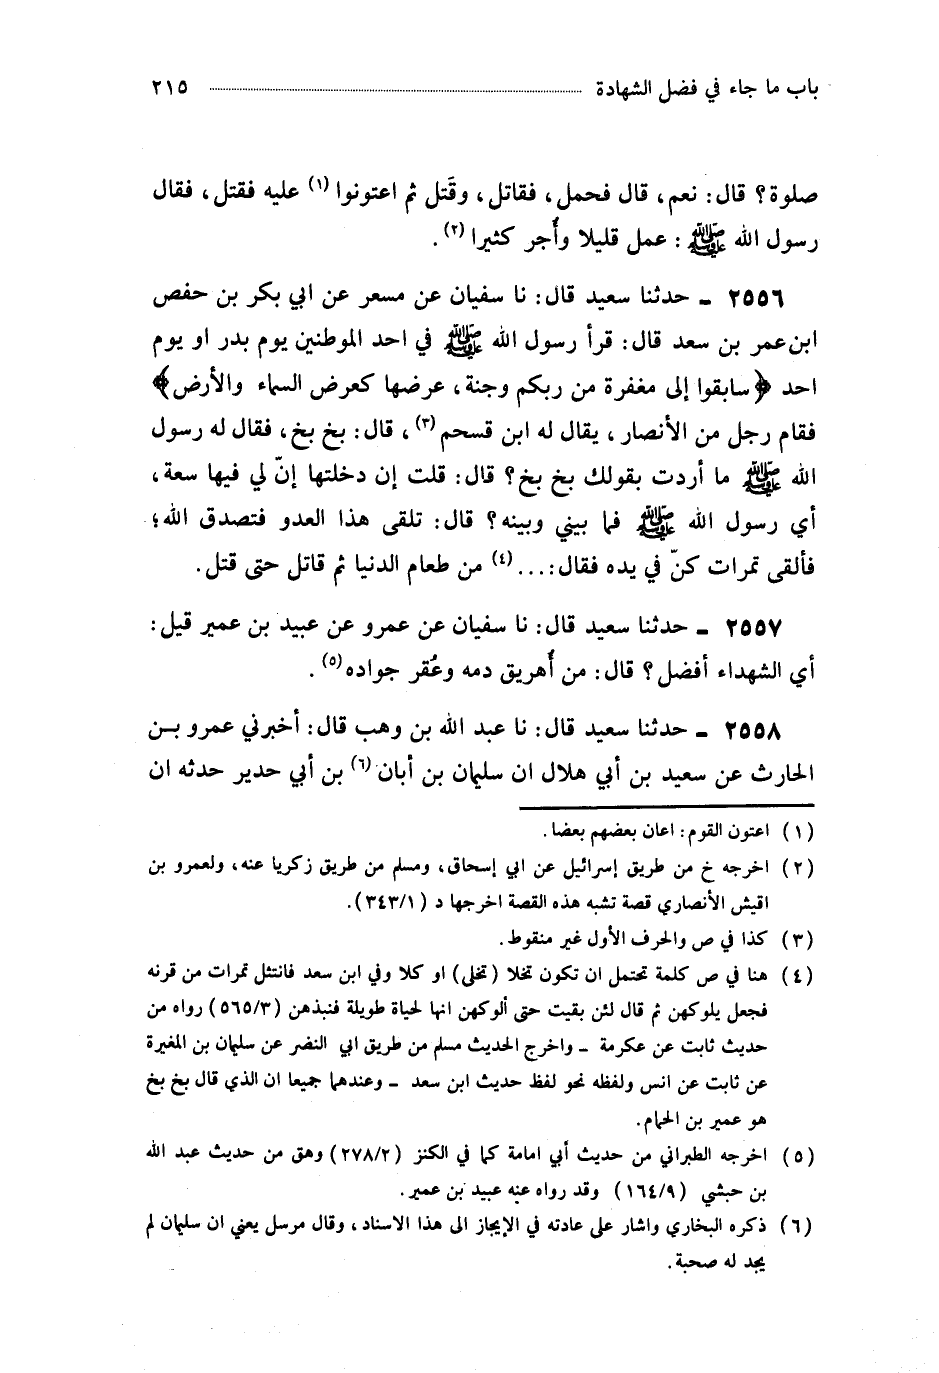 باب ما جاء في فضل الشهادة ٢١٥
صلوة؟ قال: نعم، قال فحمل، فقاتل، وقَتل ثم اعتونوا (١) عليه فقتل، فقال
رسول الله ﷺ : عمل قليلا وأُجر كثيرا (٢).
٢٥٥٦ ـ حدثنا سعيد قال: نا سفيان عن مسعر عن ابي بكر بن حفص
ابن عمر بن سعد قال: قرأ رسول الله ﷺ في احد الموطنين يوم بدر او يوم
احد ﴿سابقوا إلى مغفرة من ربكم وجنة، عرضها كعرض السماء والأرض﴾
فقام رجل من الأنصار، يقال له ابن قسحم (٣)، قال: بخ بخ، فقال له رسول
الله ﷺ ما أردت بقولك بخ بخ؟ قال: قلت إن دخلتها إنّ لي فيها سعة،
أي رسول الله ﷺ فما بيني وبينه؟ قال: تلقى هذا العدو فتصدق الله؛
فألقى تمرات كنّ في يده فقال:... (٤) من طعام الدنيا ثم قاتل حتى قتل.
٢٥٥٧ ـ حدثنا سعيد قال: نا سفيان عن عمرو عن عبيد بن عمير قيل:
أي الشهداء أفضل؟ قال: من أُهريق دمه وعُقر جواده (٥).
٢٥٥٨ ـ حدثنا سعيد قال: نا عبد الله بن وهب قال: أخبرني عمرو بن
الحارث عن سعيد بن أبي هلال ان سليمان بن أبان (٦) بن أبي حدير حدثه ان
(١) اعتون القوم: اعان بعضهم بعضا.
(٢) اخرجه خ من طريق إسرائيل عن ابي إسحاق، ومسلم من طريق زكريا عنه، ولعمرو بن
اقيش الأنصاري قصة تشبه هذه القصة اخرجها د (٣٤٣/١).
(٣) كذا في ص والحرف الأول غير منقوط.
(٤) هنا في ص كلمة تحتمل ان تكون تخلا (تخلى) او كلا وفي ابن سعد فانتثل تمرات من قرنه
فجعل يلوكهن ثم قال لئن بقيت حتى ألوكهن انها لحياة طويلة فنبذهن (٥٦٥/٣) رواه من
حديث ثابت عن عكرمة ـ واخرج الحديث مسلم من طريق ابي النضر عن سليمان بن المغيرة
عن ثابت عن انس ولفظه نحو لفظ حديث ابن سعد ـ وعندهما جميعا ان الذي قال بخ بخ
هو عمير بن الحمام.
(٥) اخرجه الطبراني من حديث أبي امامة كما في الكنز (٢٧٨/٢) وهق من حديث عبد الله
بن حبشي (١٦٤/٩) وقد رواه عنه عبيد بن عمير.
(٦) ذكره البخاري واشار على عادته في الإيجاز الى هذا الاسناد، وقال مرسل يعني ان سليمان لم
يجد له صحبة.